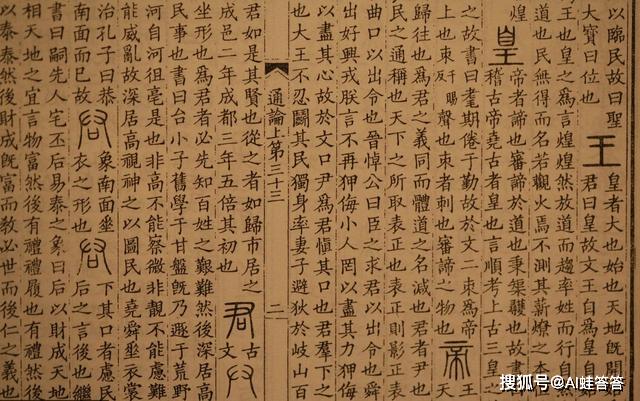 以臨民故曰聖王皇者大也始也天地旣開始
大寶曰位也君曰皇故文王自爲皇
王也皇之爲言煌煌然放道而趨率姓而行自然
道也民無得而名若觀火焉不測其薪燎之本恒
煌皇帝者諦也審諦於道也秉榘矱也故書曰
稽古帝堯古者皇也言順考上古三皇之
之故書曰耄期倦于勤故於文二朿爲帝帝王
上也朿千賜反聲也朿者刺也審諦之物也天
歸往也爲君之義同而體道之名減也君者尹也
民之通稱也天下之所取表正也表正則影正表
曲口以出令也晉悼公曰臣之求君以出令也舜
出好興戎朕言不再狎侮小人罔以盡其力狎侮
以盡其心故於文口尹爲君愼其口也君羣下之
也大王不忍鬭其民獨身率妻子避狄於岐山百
通論上第三十三 二
君如是其賢也從之者如歸市居之君古
成邑二年成都三年五倍其初也文
坐形也爲君者必先知百姓之艱難然後深居高
民事也書曰台小子舊學于甘盤旣乃遯于荒野
河自河徂亳是也非高不能察微非靚不能慮難
能威亂故深居高視神之以圖民也堯舜垂衣裳
治孔子曰恭象南面坐后下其口者慮民
南面而已故衣之形也后之言後也繼
書曰嗣先人宅丕后易泰之象曰后以財成天地
相天地之宜言物富然後有禮禮履也有禮然後
以泰泰然後財成旣富而敎必世而後仁之義也
搜狐号@AI蛙答答